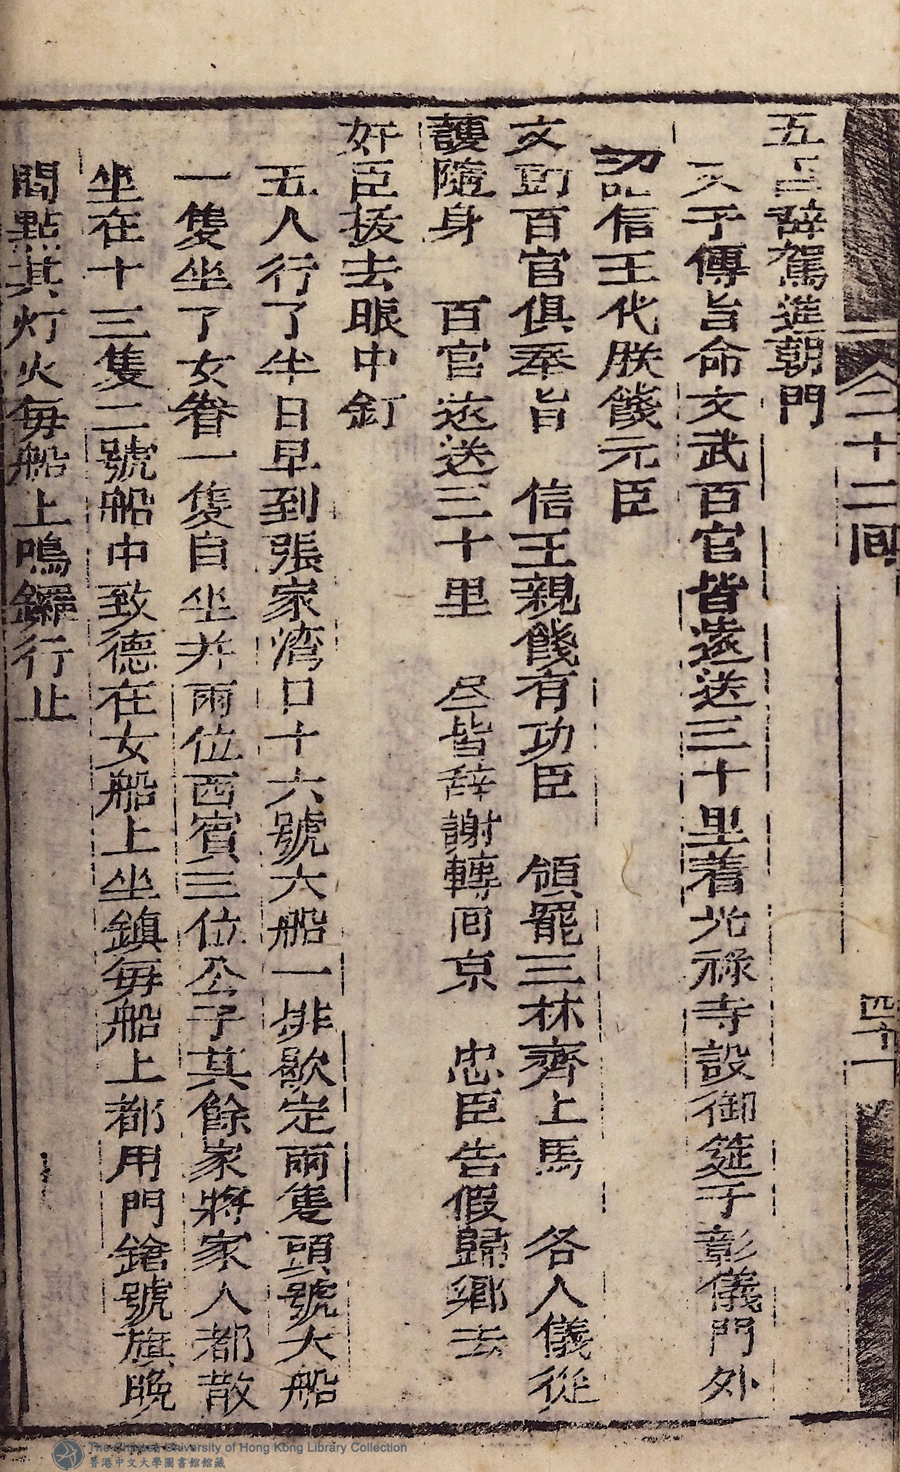 二十二回
四十一
五臣辞駕進朝門
天子傳旨命文武百官皆遠送三十里着光祿寺設御筵于彰儀門外
詔信王代朕餞元臣
文武百官俱奉旨 信王親餞有功臣 領罷三杯齊上馬 各人儀從
護隨身 百官遠送三十里 尽皆辞謝轉囘京 忠臣告假歸鄉去
奸臣拔去眼中釘
五人行了半日早到張家湾口十六號大船一排歇定兩隻頭號大船
一隻坐了女眷一隻自坐并兩位西賓三位公子其餘家將家人都散
坐在十三隻二號船中致德在女船上坐鎮每船上都用門鎗號旗晚
間點其灯火每船上鳴鑼行止
The Chinese University of Hong Kong Library Collection
香港中文大學圖書館館藏